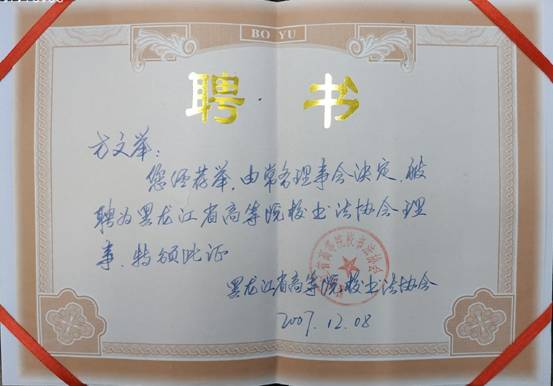 BO YU
聘书
方文举:
您经荐举,由常务理事会决定,被
聘为黑龙江省高等院校书法协会理
事,特颁此证
黑龙江省高等院校书法协会
2007.12.08